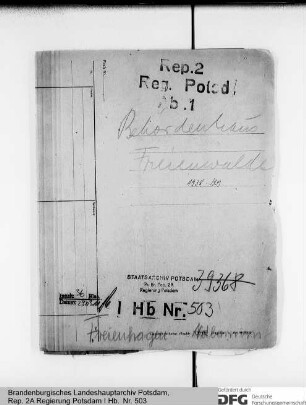 Rep.2
Reg. Potsd.
Ab.1
Behördenhaus
Freienwalde
STAATSARCHIV POTSDAM
Pr. Br. Rep. 2A
Regierung Potsdam
39368
I Hb Nr. 503
Freienhagen
Brandenburgisches Landeshauptarchiv Potsdam,
Rep. 2A Regierung Potsdam I Hb. Nr. 503
Gefördert durch
DFG Deutsche
Forschungsgemeinschaft